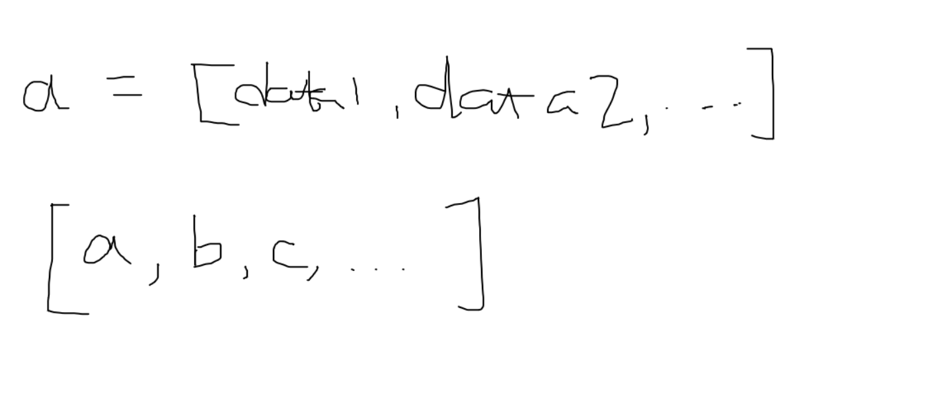 a = [data1, data2, ...]
[a, b, c, ...]